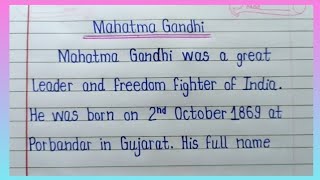 Mahatma Gandhi
Mahatma Gandhi was a great
Leader and freedom fighter of India.
He was born on 2nd October 1869 at
Porbandar in Gujarat. His full name